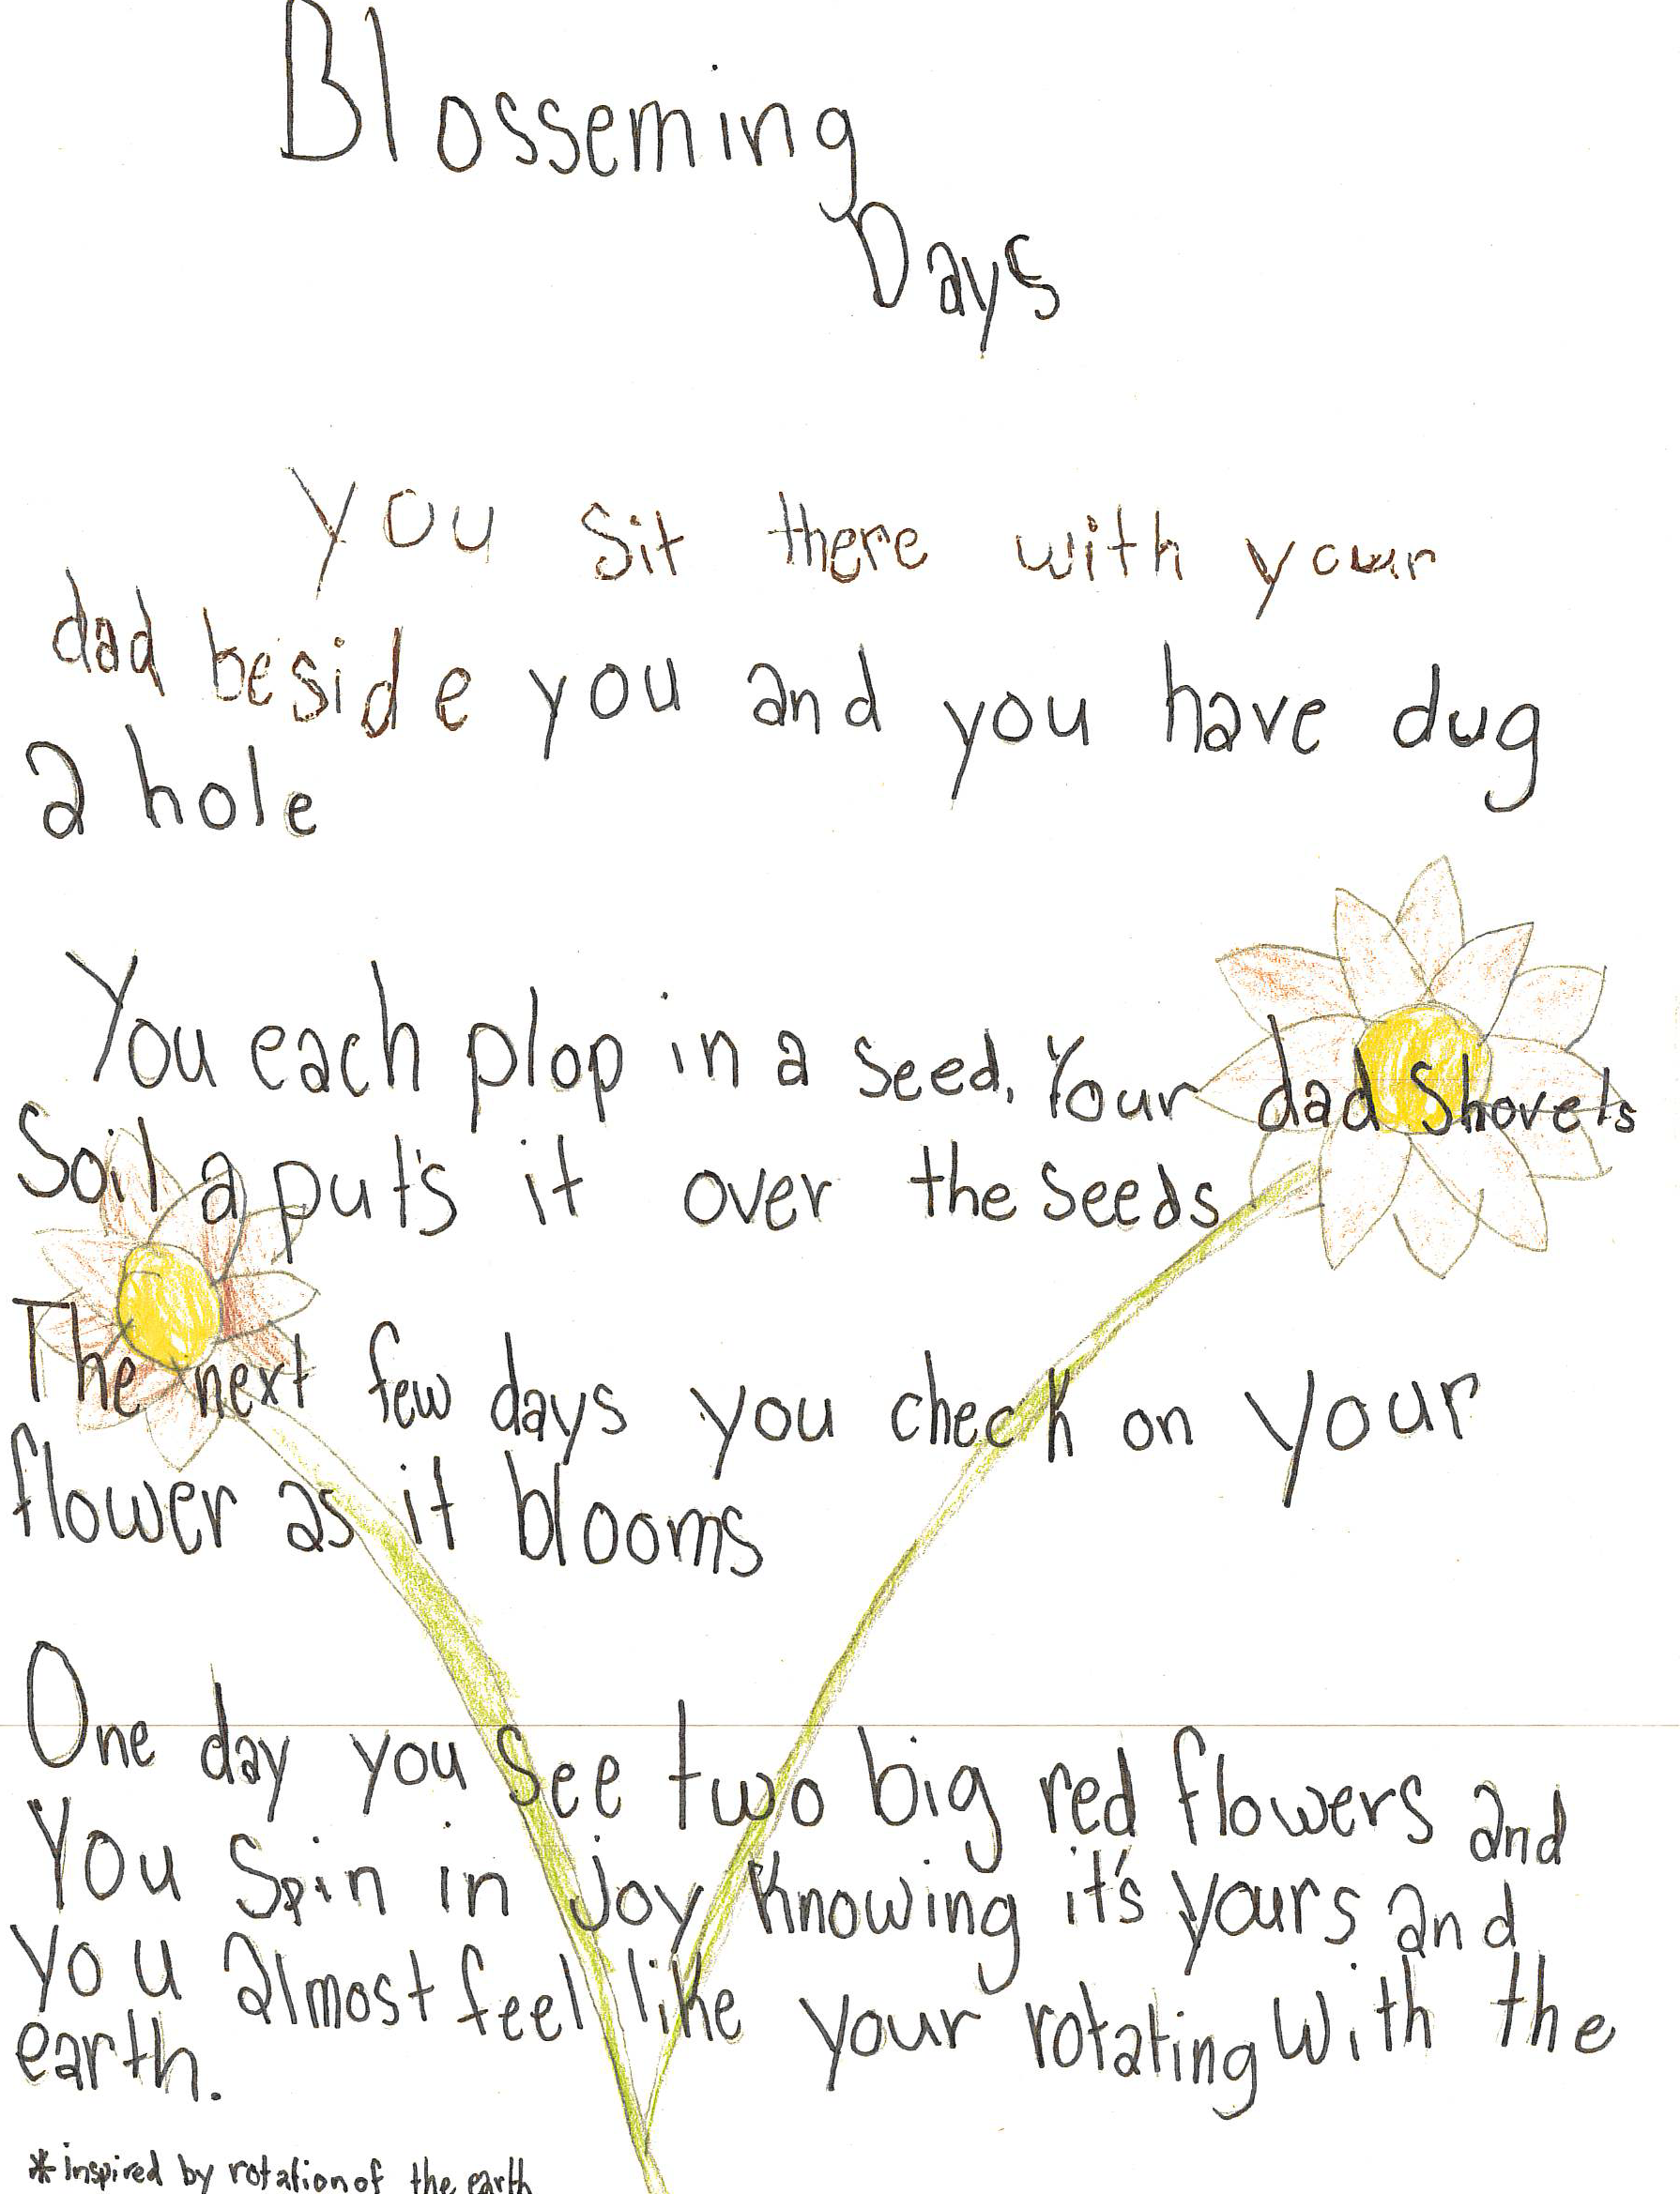 Blosseming
Days
You sit there with your
dad beside you and you have dug
a hole
You each plop in a seed. Your dad shovels
Soil a put's it over the seeds
The next few days you check on your
flower as it blooms
One day you see two big red flowers and
You Spin in joy Knowing it's yours and
you almost feel like your rotating with the
earth.
*inspired by rotation of the earth